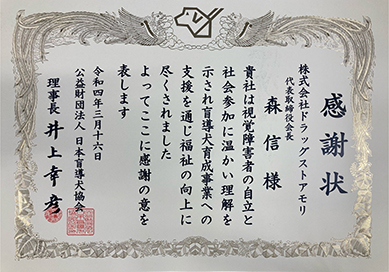 感謝状
株式会社ドラッグストアモリ
代表取締役会長
森信様
貴社は視覚障害者の自立と
社会参加に温かい理解を
示され盲導犬育成事業への
支援を通じ福祉の向上に
尽くされました
よってここに感謝の意を
表します
令和四年三月十六日
公益財団法人 日本盲導犬協会
理事長 井上幸彦